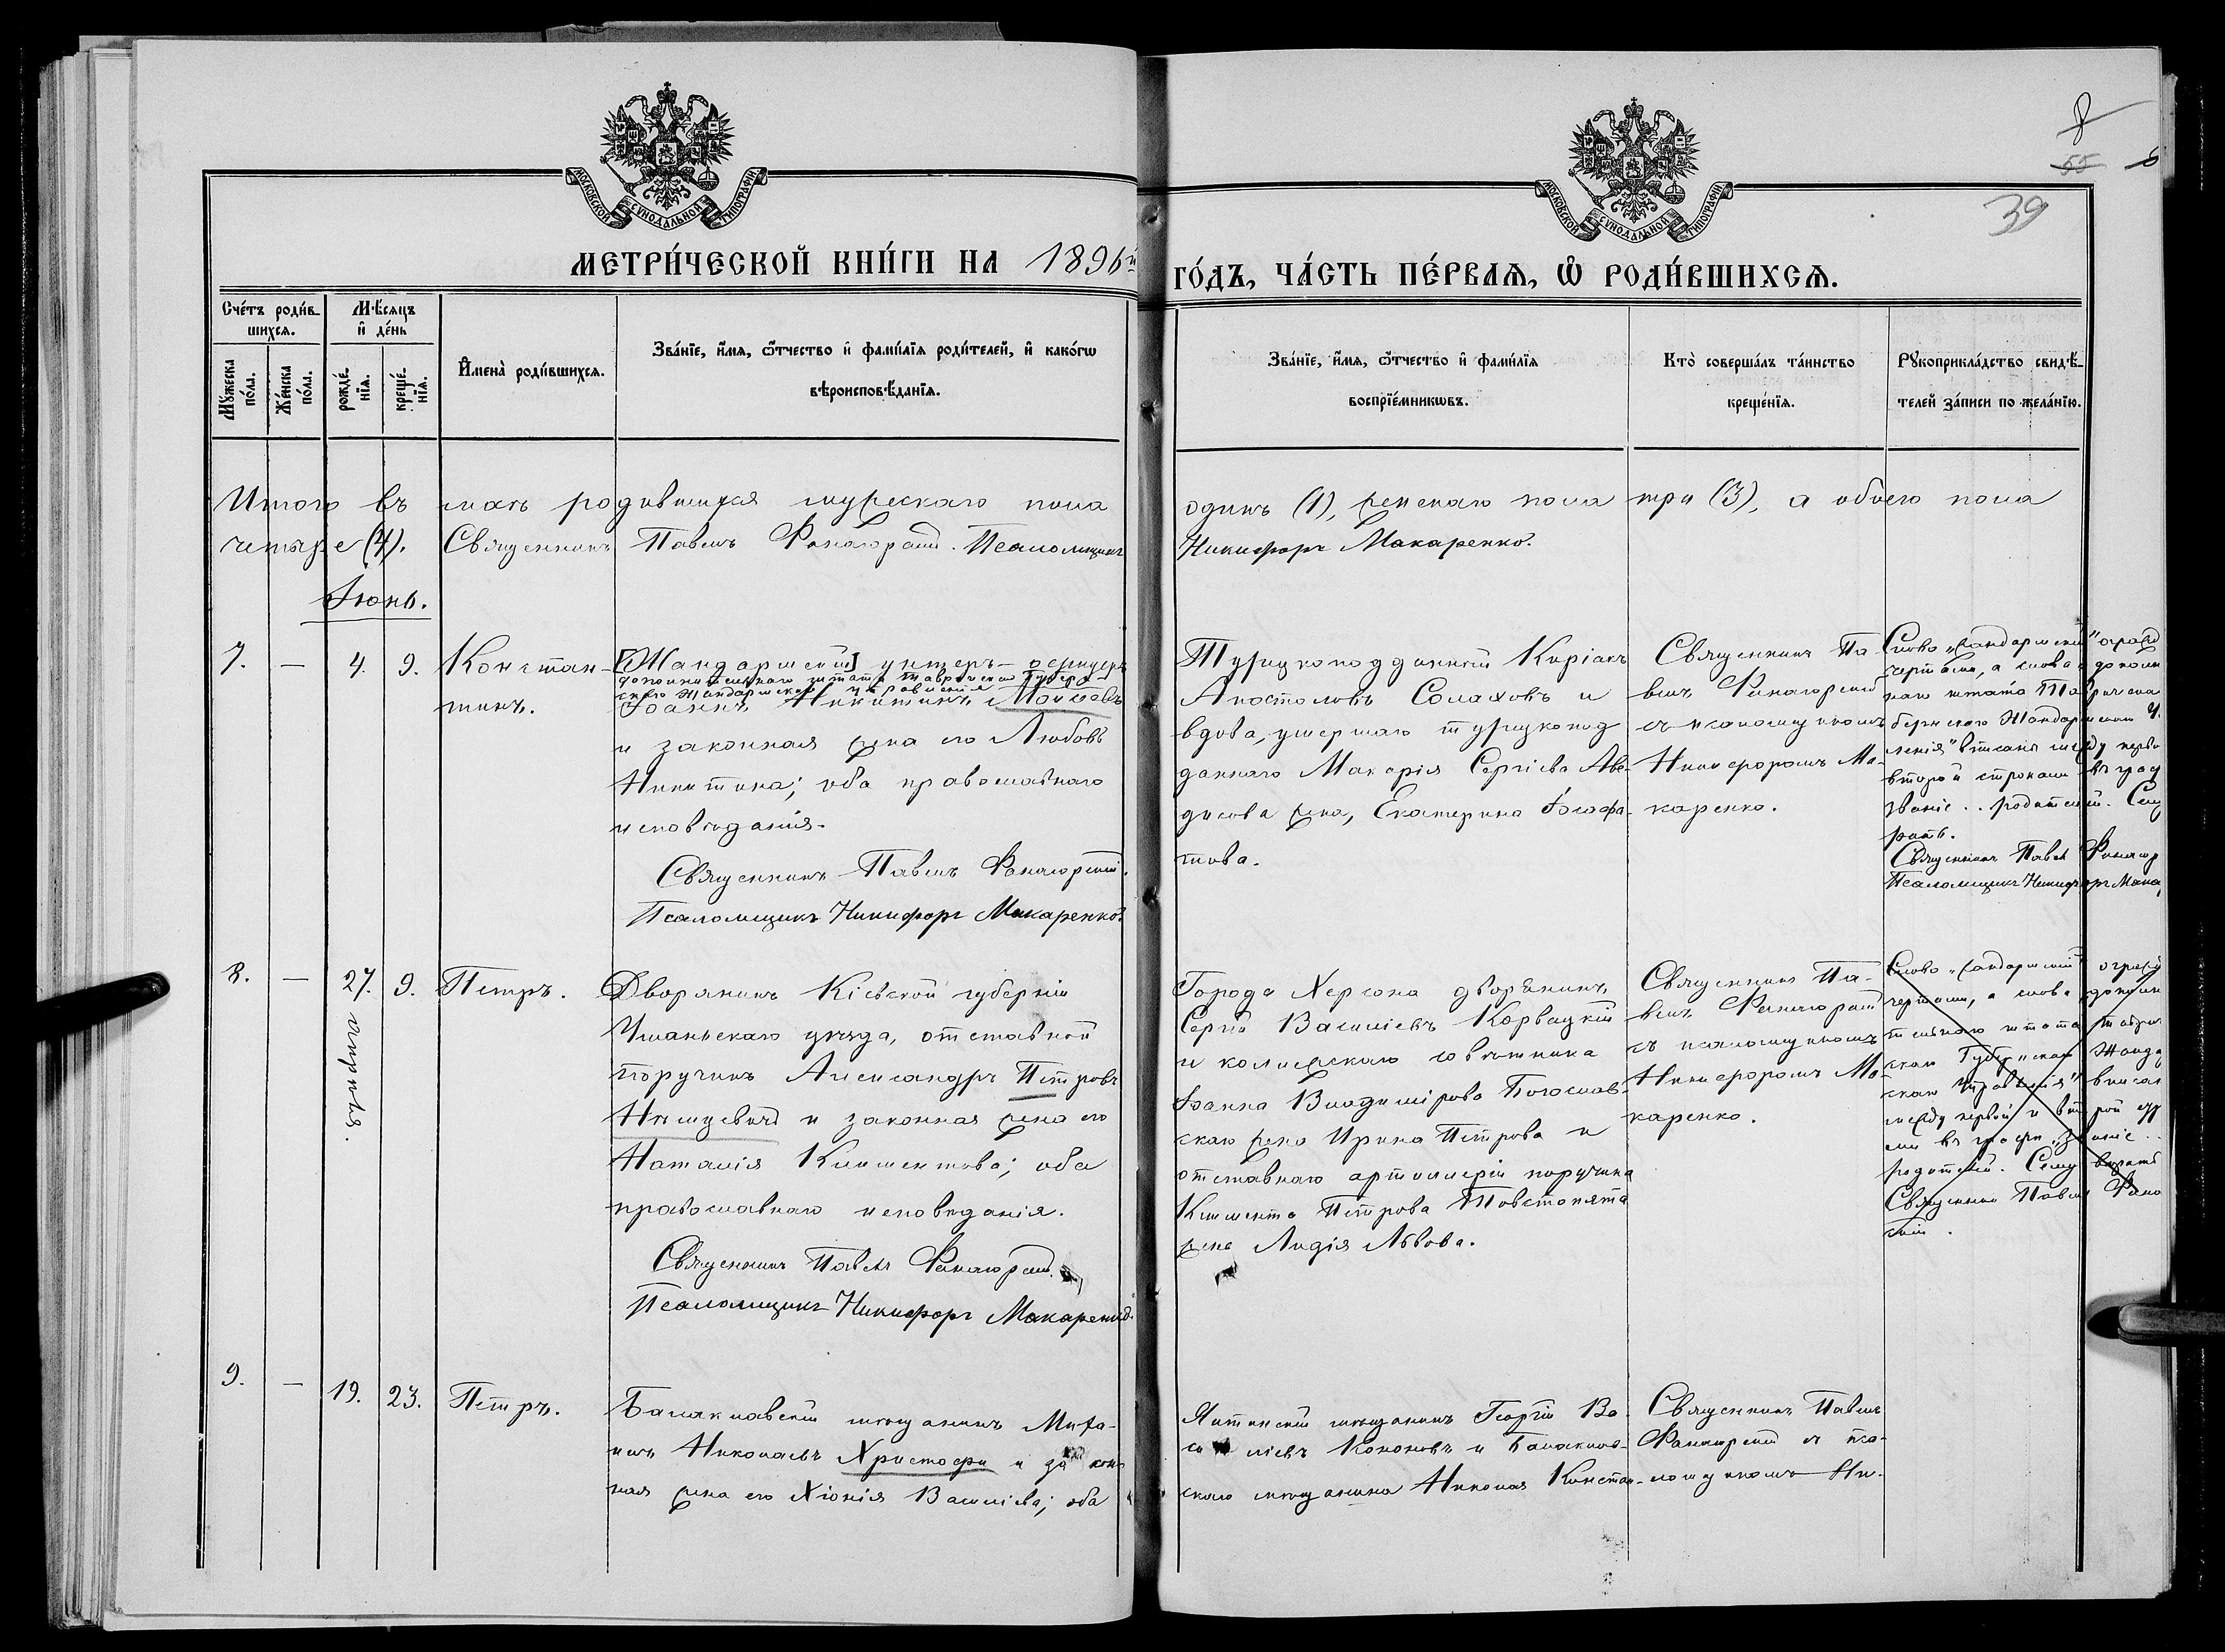 МОСКОВСКОЙ СѴНОДАЛЬНОЙ ТИПОГРАФІИ
МОСКОВСКОЙ СѴНОДАЛЬНОЙ ТИПОГРАФІИ
8
55
39
МЕТРИ́ЧЕСКОЙ КНИ́ГИ НА 1896й
ГО́ДЪ, ЧА́СТЬ ПЕ́РВАѦ, Ѡ҆ РОДИ́ВШИХСѦ.
Сче́тъ роди́в-
шихсѧ.
Мѣ́сѧцъ
и҆ де́нь
Мꙋ́жеска по́ла.
Же́нска по́ла.
рожде́-нїѧ.
креще́-нїѧ.
И҆мена̀ роди́вшихсѧ.
Зва́нїе, и҆́мѧ, ѻ҆́тчество и҆ фами́лїѧ роди́телей, и҆ како́гѡ
вѣроисповѣ́данїѧ.
Зва́нїе, и҆́мѧ, ѻ҆́тчество и҆ фами́лїѧ
воспрїе́мникѡвъ.
Кто̀ соверша́лъ та́инство
креще́нїѧ.
Рꙋкоприкла́дство свидѣ́-
телей за́писи по жела́нїю.
Итого въ маѣ родившихся мужескаго пола
одинъ (1), женскаго пола три (3), а обоего пола
четыре (4). Священникъ Павелъ Фанагорскій. Псаломщикъ
Никифоръ Макаренко.
Іюнь.
7. — 4. 9.
Констан-
тинъ.
[Жандармскій] унтеръ-офицеръ
дополнительнаго штата Таврическаго Губерн-
скаго Жандармскаго управленія
Іоаннъ Никитинъ Мошевъ
и законная жена его Любовь
Никитина; оба православнаго
исповѣданія.
Священникъ Павелъ Фанагорскій.
Псаломщикъ Никифоръ Макаренко.
Турецкоподданный Киріакъ
Апостоловъ Солаховъ и
вдова, умершаго турецкопод
даннаго Макарія Сергіева Аве-
дисова жена, Екатерина Іосафа-
това.
Священникъ Па-
велъ Фанагорскій
съ псаломщикомъ
Никифоромъ Ма-
каренко.
Слово „жандармскій" огражд
чертами, а слова „дополн
наго штата Таврическа
бернскаго Жандармскаго У.
ленія" вписаны между перво
второй строками въ граф
званіе.. родителей.
Священникъ Павелъ Фанагор
Псаломщикъ Никифоръ Мака
8. — 27. 9.
апрѣля.
Петръ.
Дворянинъ Кіевской губерніи
Уманьскаго уѣзда, отставной
поручикъ Александръ Петровъ
и законная жена его
Наталія Климентова; оба
православнаго исповѣданія.
Священникъ Павелъ Фанагорскій.
Псаломщикъ Никифоръ Макаренко.
Города Херсона дворянинъ
Сергій Василіевъ Корвацкій
и коллежскаго совѣтника
Іоанна Владимірова Богослов-
скаго жена Ирина Петрова и
отставнаго артиллеріи поручика
Климента Петрова Товстопята
жена Лидія Львова.
Священникъ Па-
велъ Фанагорскій
съ псаломщикомъ
Никифоромъ Ма-
каренко.
Слово „жандармскій" огражд
чертами, а слова „дополн
тельнаго штата Таврич
скаго Губернскаго Жанда
скаго Управленія" вписан
между первой и второй стр
ми въ графѣ „Званіе..
родителей.
Священникъ Павелъ Фана
скій.
9. — 19. 23.
Петръ.
Балаклавскій мѣщанинъ Миха-
илъ Николаевъ Христофи и закон-
ная жена его Хіонія Василіева; оба
Ялтинскій мѣщанинъ Георгій Ва-
силіевъ Кононовъ и Балаклав-
скаго мѣщанина Николая Констан-
Священникъ Павелъ
Фанагорскій съ пса-
ломщикомъ Ни-